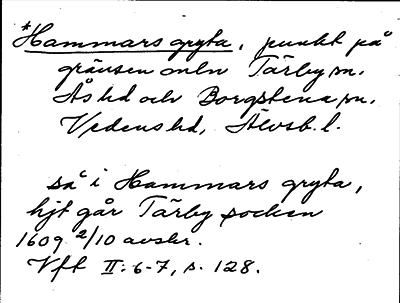 *Hammars gryta, punkt på
gränsen mln Tärby sn.
Ås hd och Borgstena sn.
Vedens hd, Älvsb. l.
så i Hammars gryta,
hjt går Tärby socken
1609 2/10 avskr.
Vft II: 6-7, s. 128.